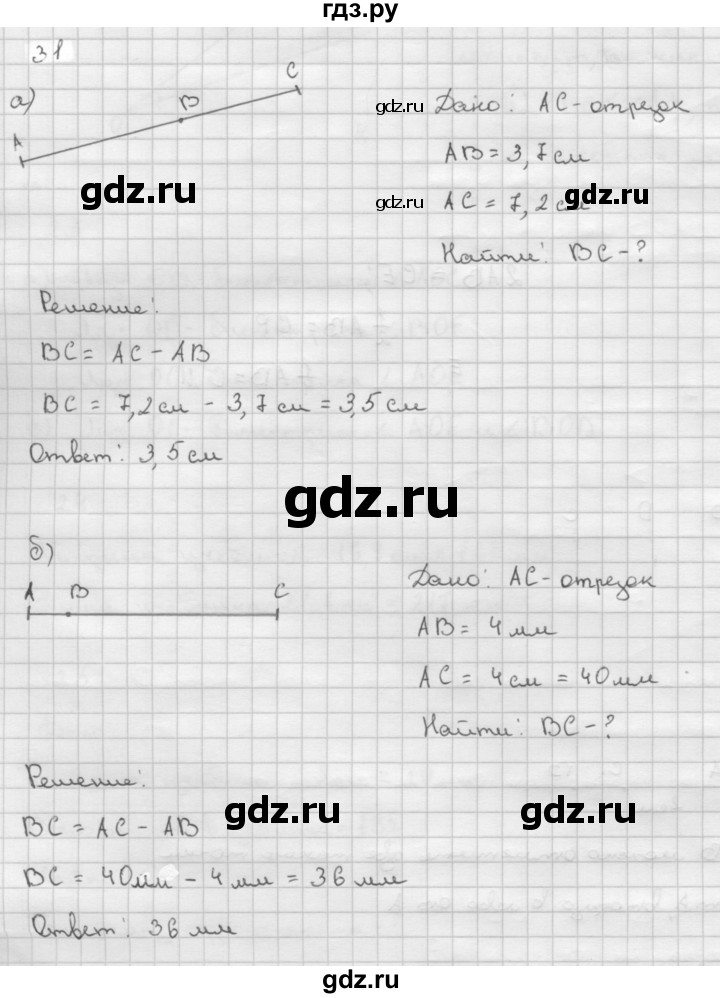 гдз.ру
31
а)
A B C
gdz.ru
Дано: AC - отрезок
AB = 3,7 см
gdz.ru
gdz.ru
AC = 7,2 см
gdz.ru
Найти: BC - ?
Решение:
BC = AC - AB
BC = 7,2 см - 3,7 см = 3,5 см
Ответ: 3,5 см
gdz.ru
б)
A B C
Дано: AC - отрезок
AB = 4 мм
AC = 4 см = 40 мм
Найти: BC - ?
Решение:
gdz.ru
gdz.ru
BC = AC - AB
BC = 40 мм - 4 мм = 36 мм
Ответ: 36 мм
gdz.ru